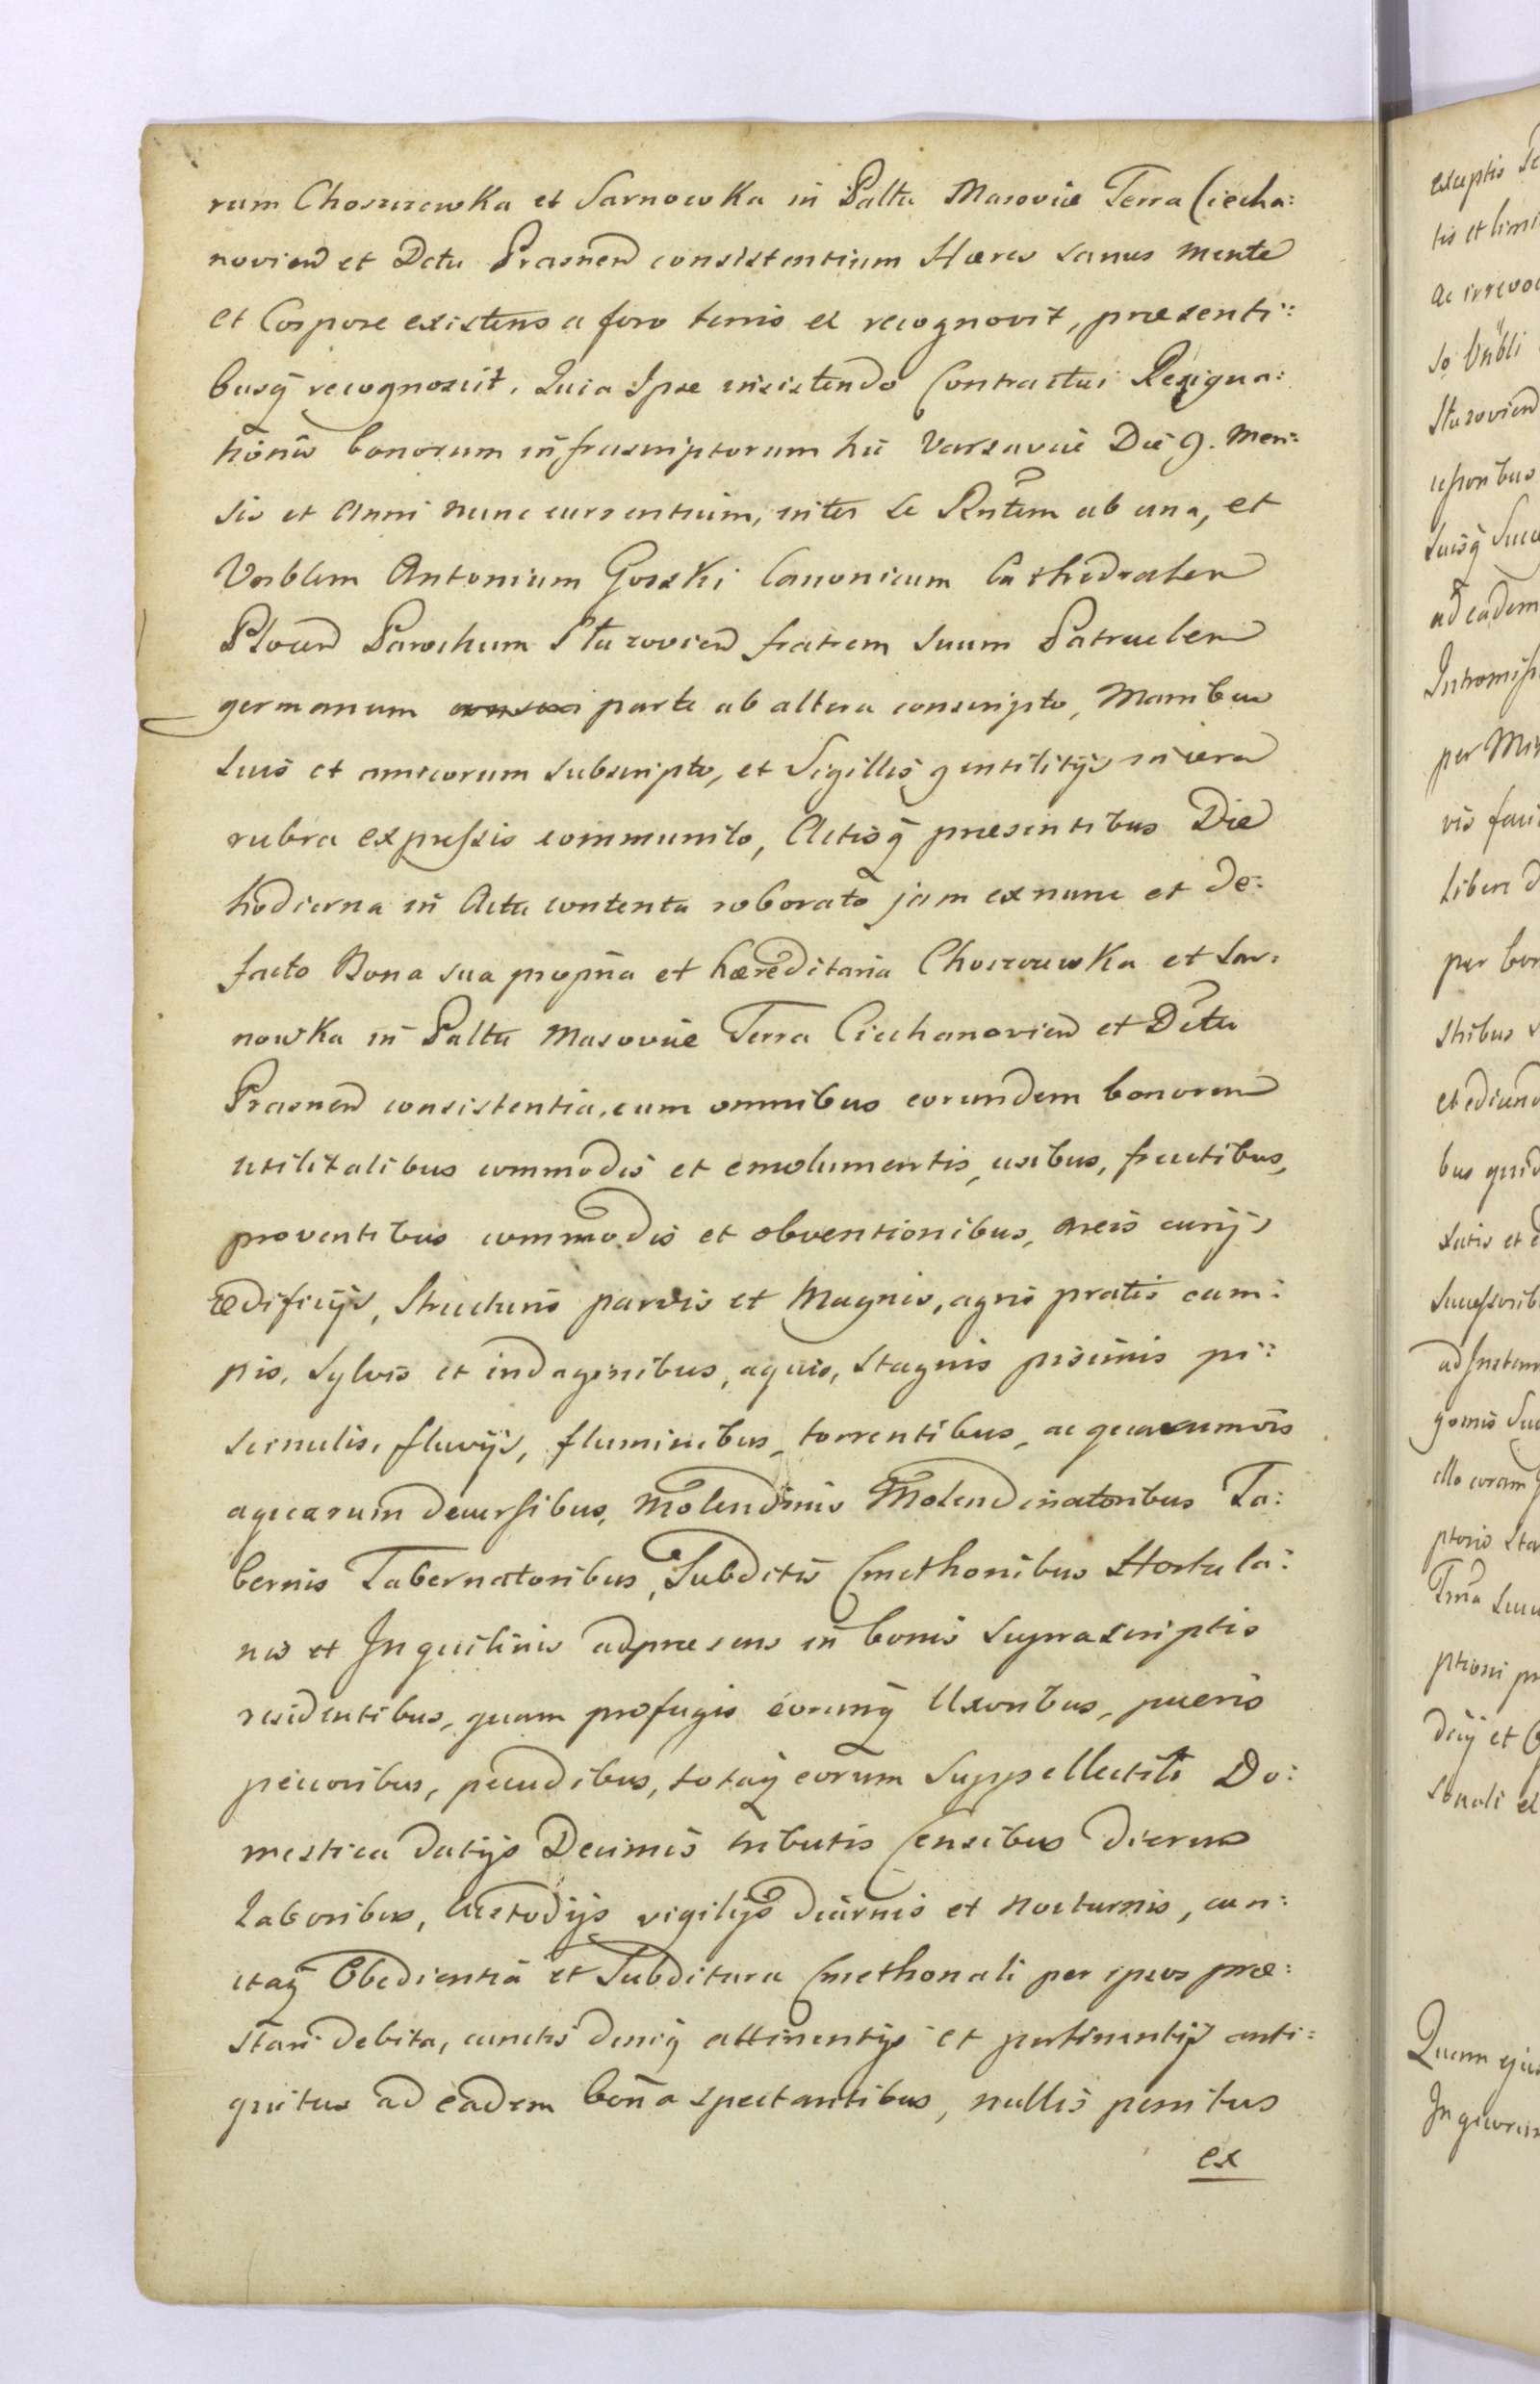 rum Choszczewka et Sarnowka in Pałtu Masoviæ Terra Ciecha:
novien et Dctu Prasnen consistentium Hæres sanus mente
et Corpore existens a foro terris et recognovit, præsenti:
busq̃ recognoscit. Quia Ipse insistendo Contractui Resigna:
tionis bonorum infrascriptorum hic Varsaviæ Die 9. Men:
sis et Anni nunc currentium, inter se Rntem ab una, et
Vnblem Antonium Gosski Canonicum Cathedralem
Plocen Parochum Sturovien fratrem suum Patruelem
germanum parte ab altera conscripto, Manibus
suis et amicorum subscripto, et Sigillis gentilitijs in cera
rubra expressis communito, Actisq̃ præsentibus Die
hodierna in Acta contenta roborato jam ex nunc et de:
facto Bona sua propria et hæreditaria Choszczewka et Sar:
nowka in Pałtu Masoviæ Terra Ciechanovien et Dctu
Prasnen consistentia, cum omnibus eorundem bonorum
utilitatibus commodis et emolumentis, usibus, fructibus,
proventibus commodis et obventionibus, areis curijs
ædificijs, Structuris parvis et Magnis, agris pratis cam:
pis, Sylvis et indaginibus, aquis, Stagnis piscinis pi:
scinulis, fluvijs, fluminibus, torrentibus, ac quarumvis
aquarum decursibus, Molendinis Molendinatoribus Ta:
bernis Tabernatoribus, Subditis Cmethonibus Hortula:
nis et Inquilinis ad præsens in bonis suprascriptis
residentibus, quam profugis eorumq̃ Uxoribus, pueris
pecoribus, pecudibus, totaq̃ eorum Suppellectili Do:
mestica Datijs Decimis tributis Censibus
Laboribus, Custodijs vigilijs diurnis et nocturnis, cun:
ctaq̃ Obedientia et Subditura Cmethonali per ipsos præ:
stari debita, cunctis deniq̃ attinentijs et pertinentijs anti:
quitus ad eadem bona spectantibus, nullis penitus
ex